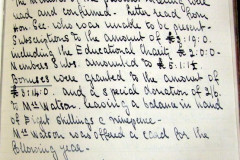 The minutes of the previous meeting were
read and confirmed. Letter read from
Hon Sec. who was unable to be present.
Subscriptions to the amount of £
including the Educational Grant £2:0:0-
Members Subs. amounted to £5:11:
Bonuses were granted to the amount of
£3:14:0. and a special donation of 2/6
to Mrs Watson. leaving a balance in hand
of Eight shillings & ninepence-
Mrs Watson was offered a card for the
following year-